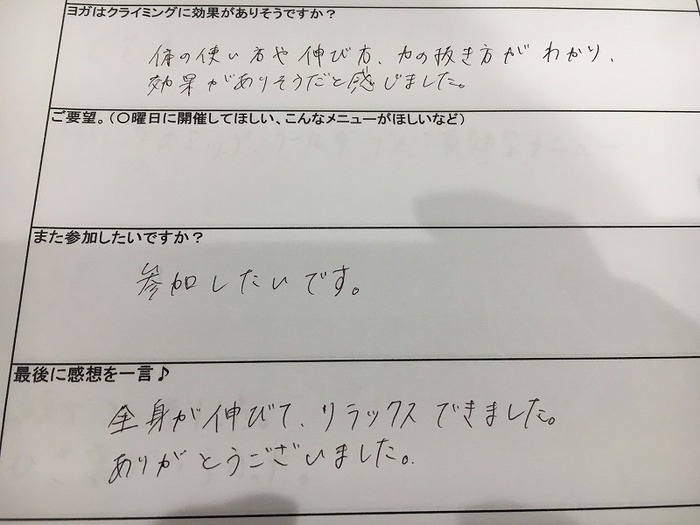 ヨガはクライミングに効果がありそうですか？
体の使い方や伸び方、力の抜き方がわかり、
効果がありそうだと感じました。
ご要望。（〇曜日に開催してほしい、こんなメニューがほしいなど）
また参加したいですか？
参加したいです。
最後に感想を一言♪
全身が伸びて、リラックスできました。
ありがとうございました。